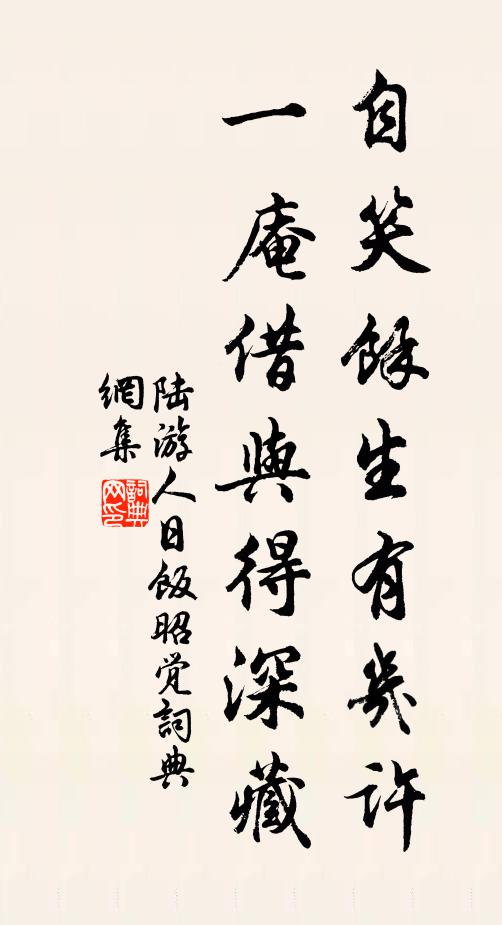 自笑餘生有幾許
一庵借與得深藏
陆游人日飯昭覚詞典
網集
詞典
网印